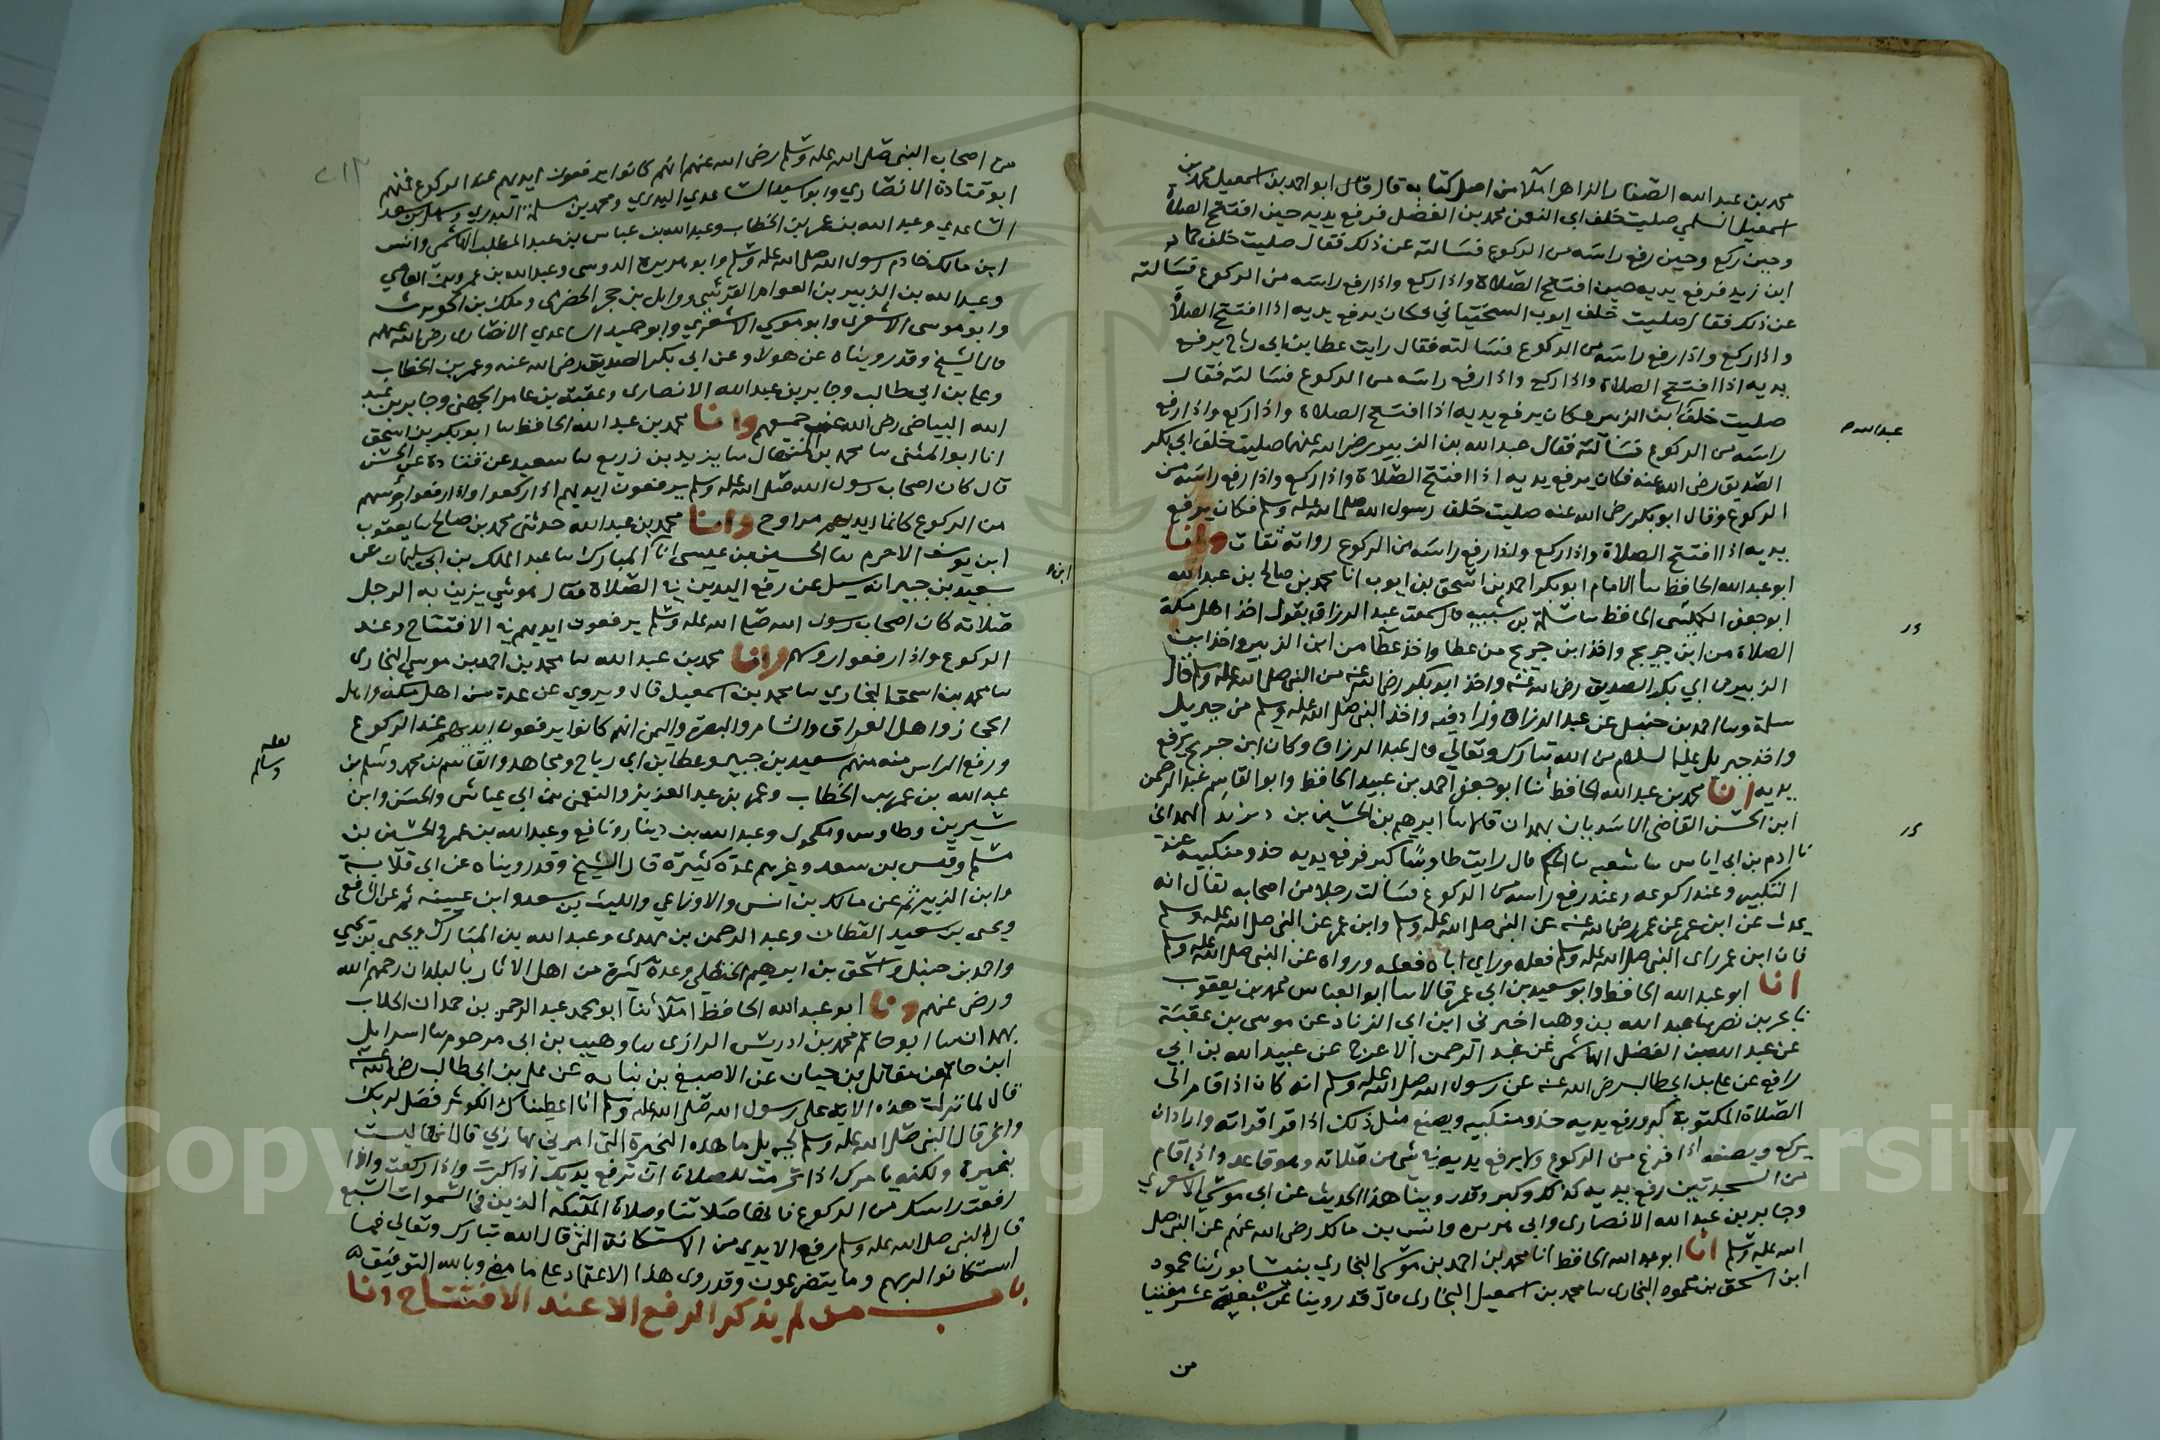 محمد بن عبد الله الصفار الزاهد املا من اصل كتابه قال قال ابو احمد بن اسمعيل محمد بن
اسمعيل السلمي صليت خلف ابي النعمن محمد بن الفضل فرفع يديه حين افتتح الصلاة
وحين ركع وحين رفع راسه من الركوع فسالته عن ذلك فقال صليت خلف حماد
ابن زيد فرفع يديه حين افتتح الصلاة واذا ركع واذا رفع راسه من الركوع فسالته
عن ذلك فقال صليت خلف ايوب السختياني فكان يرفع يديه اذا افتتح الصلاة
واذا ركع واذا رفع راسه من الركوع فسالته فقال رايت عطا بن ابي رباح يرفع
يديه اذا افتتح الصلاة واذا ركع واذا رفع راسه من الركوع فسالته فقال
صليت خلف ابن الزبير فكان يرفع يديه اذا افتتح الصلاة واذا ركع واذا رفع
عبد الله
راسه من الركوع فسالته فقال عبد الله بن الزبير رضي الله عنهما صليت خلف ابي بكر
الصديق رضي الله عنه فكان يرفع يديه اذا افتتح الصلاة واذا ركع واذا رفع راسه من
الركوع وقال ابو بكر رضي الله عنه صليت خلف رسول الله صلى الله عليه وسلم فكان يرفع
يديه اذا افتتح الصلاة واذا ركع واذا رفع راسه من الركوع رواته ثقات وانا
ابو عبد الله الحافظ سا الامام ابو بكر احمد بن اسحق بن ايوب انا محمد بن صالح بن عبد الله
ابو جعفر الكيليني الحافظ سا سلمة بن شبيب قال سمعت عبد الرزاق يقول اخذ اهل مكة
الصلاة من ابن جريج واخذ ابن جريج من عطا واخذ عطا من ابن الزبير واخذ ابن
الزبير من ابي بكر الصديق رضي الله عنه واخذ ابو بكر رضي الله عنه من النبي صلى الله عليه وسلم قال
سلمة وسا احمد بن حنبل عن عبد الرزاق وزاد فيه واخذ النبي صلى الله عليه وسلم من جبريل
واخذ جبريل عليه السلام من الله تبارك وتعالى قال عبد الرزاق وكان ابن جريج يرفع
يديه انا محمد بن عبد الله الحافظ ثنا ابو جعفر احمد بن عبيد الحافظ وابو القاسم عبد الرحمن
ابن الحسن القاضي الاسديان بهمدان قالا سا ابرهيم بن الحسين بن ديزيل الهمداني
نا ادم بن ابي اياس سا شعبه سا الحكم قال رايت طاوسا كبر فرفع يديه حذو منكبيه عند
التكبير وعند ركوعه وعند رفع راسه من الركوع فسالت رجلا من اصحابه فقال انه
يحدث عن ابن عمر عن عمر رضي الله عنه عن النبي صلى الله عليه وسلم وابن عمر عن النبي صلى الله عليه وسلم
فان ابن عمر راى النبي صلى الله عليه وسلم فعله وراي اباه فعله ورواه عن النبي صلى الله عليه وسلم
انا ابو عبد الله الحافظ وابو سعيد بن ابي عمر قالا سا ابو العباس محمد بن يعقوب
نا بحر بن نصر سا عبد الله بن وهب اخبرني ابن ابي الزناد عن موسى بن عقبة
عن عبد الله بن الفضل الهاشمي عن عبد الرحمن الاعرج عن عبيد الله بن ابي
رافع عن علي بن ابي طالب رضي الله عنه عن رسول الله صلى الله عليه وسلم انه كان اذا قام الى
الصلاة المكتوبة كبر ورفع يديه حذو منكبيه ويصنع مثل ذلك اذا قرا قراته واراد ان
يركع ويصنعه اذا فرغ من الركوع ولا يرفع يديه في شي من صلاته وهو قاعد واذا قام
من السجدتين رفع يديه كذلك وكبر وقد روينا هذا الحديث عن ابي موسى الاشعري
وجابر بن عبد الله الانصاري وابي هريره وانس بن مالك رضي الله عنهم عن النبي صلى
الله عليه وسلم انا ابو عبد الله الحافظ انا محمد بن احمد بن موسى البخاري بنيسابور ثنا محمود
ابن اسحق بن محمود البخاري سا محمد بن اسمعيل البخاري قال قد روينا عن سبعة عشر نفسا
من
من اصحاب النبي صلى الله عليه وسلم رضي الله عنهم انهم كانوا يرفعون ايديهم عند الركوع فمنهم
ابو قتادة الانصاري وابو اسيد الساعدي البدري ومحمد بن مسلمة البدري وسهل بن سعد
الساعدي وعبد الله بن عمر بن الخطاب وعبد الله بن عباس بن عبد المطلب الهاشمي وانس
ابن مالك خادم رسول الله صلى الله عليه وسلم وابو هريرة الدوسي وعبد الله بن عمرو بن العاصي
وعبد الله بن الزبير بن العوام القرشي ووايل بن حجر الحضرمي وملك بن الحويرث
وابو موسى الاشعري وابو موسي الاشعري وابو حميد الساعدي الانصاري رضي الله عنهم
قال الشيخ وقد رويناه عن هولاء وعن ابي بكر الصديق رضي الله عنه وعمر بن الخطاب
وعلي بن ابي طالب وجابر بن عبد الله الانصاري وعقبة بن عامر الجهني وجابر بن عبد
الله البياضي رضي الله عنهم جميعهم وانا محمد بن عبد الله الحافظ سا ابو بكر بن اسحق
انا ابو المثنى سا محمد بن المنهال سا يزيد بن زريع سا سعيد عن قتادة عن الحسن
قال كان اصحاب رسول الله صلى الله عليه وسلم يرفعون ايديهم اذا ركعوا واذا رفعوا روسهم
من الركوع كانما ايديهم مراوح وانا محمد بن عبد الله حدثني محمد بن صالح سا يعقوب
ابن يوسف الاخرم سا الحسين بن عيسى انا المبارك سا عبد الملك بن ابي سليمان عن
ابن
سعيد بن جبير انه سيل عن رفع اليدين في الصلاة فقال هو شي يزين به الرجل
صلاته كان اصحاب رسول الله صلى الله عليه وسلم يرفعون ايديهم في الافتتاح وعند
الركوع واذا رفعوا روسهم وانا محمد بن عبد الله سا محمد بن احمد بن موسى البخاري
سا محمود بن اسحق البخاري سا محمد بن اسمعيل قال ويروي عن عدة من اهل مكة واهل
الحجاز واهل العراق والشام والبصرة واليمن انهم كانوا يرفعون ايديهم عند الركوع
ورفع الراس منه منهم سعيد بن جبير وعطا بن ابي رباح ومجاهد والقاسم بن محمد وسلم بن
لعله
وسالم
عبد الله بن عمر بن الخطاب وعمر بن عبد العزيز والنعمن بن ابي عياش والحسن وابن
سيرين وطاوس ومكحول وعبد الله بن دينار ونافع وعبيد الله بن عمر والحسن بن
مسلم وقيس بن سعد وغيرهم عدة كثيرة قال الشيخ وقد رويناه عن ابي قلابة
وابن الزبير ثم عن مالك بن انس والاوزاعي والليث بن سعد وابن عيينه ثم عن الشافعي
ويحيى بن سعيد القطان وعبد الرحمن بن مهدي وعبد الله بن المبارك ويحيى بن يحيى
واحمد بن حنبل واسحق بن ابرهيم الحنظلي وعدة كثيرة من اهل الاثار بالبلدان رحمهم الله
ورضي عنهم ونا ابو عبد الله الحافظ املا ثنا ابو محمد عبد الرحمن بن حمدان الجلاب
بهمدان سا ابو حاتم محمد بن ادريس الرازي سا وهيب بن ابي مرحوم سا اسرايل
ابن حاتم عن مقاتل بن حيان عن الاصبغ بن نباته عن علي بن ابي طالب رضي الله عنه
قال لما نزلت هذه الاية على رسول الله صلى الله عليه وسلم انا اعطيناك الكوثر فصل لربك
وانحر قال النبي صلى الله عليه وسلم لجبريل ما هذه النحيرة التي امرني بها ربي قال انها ليست
بنحيرة ولكنه يامرك اذا تحرمت للصلاة ان ترفع يديك اذا كبرت واذا ركعت واذا
رفعت راسك من الركوع فانها صلاتنا وصلاة الملايكه الذين في السموات السبع
قال النبي صلى الله عليه وسلم رفع الايدي من الاستكانة التي قال الله تبارك وتعالى فما
استكانوا لربهم وما يتضرعون وقد روى هذا الاعتماد على ما مضى وبالله التوفيق
باب من لم يذكر الرفع الا عند الافتتاح انا